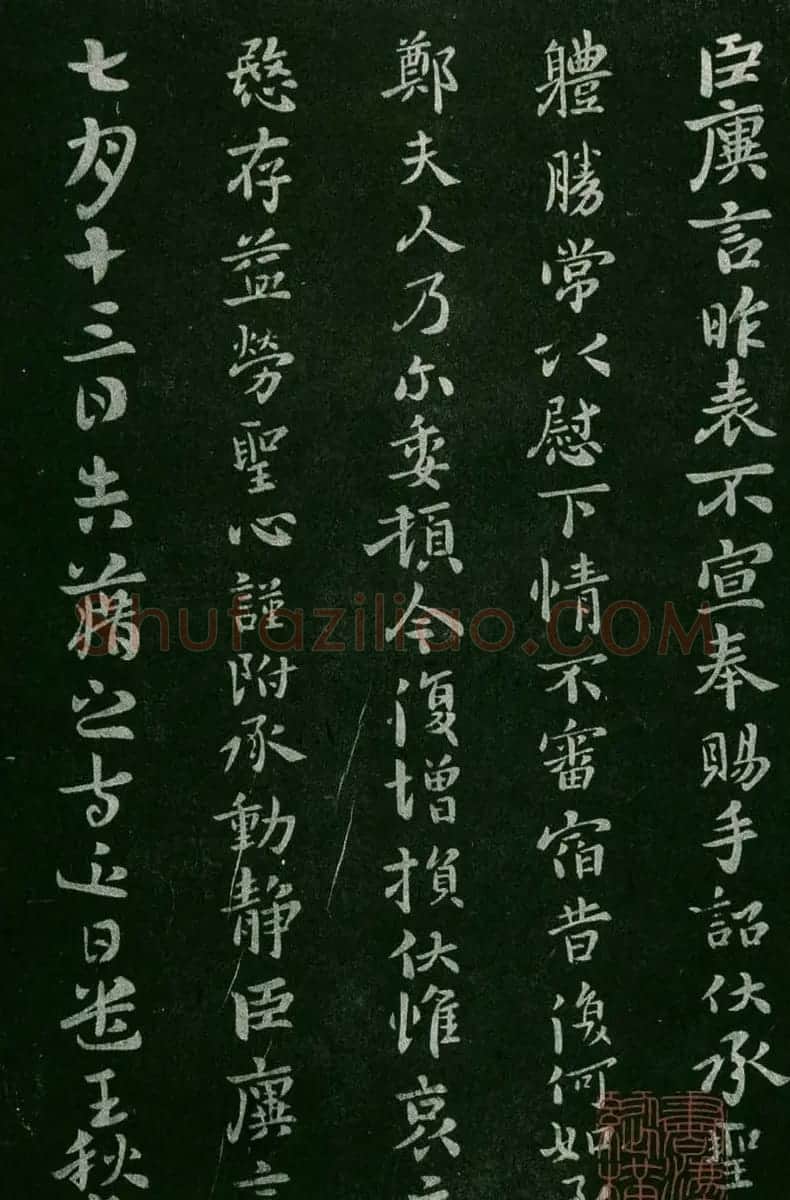 臣廙言昨表不宣奉賜手詔伏承聖
軆勝常以慰下情不審宿昔復何如
鄭夫人乃尔委頓今復增損伏惟哀
愍存益勞聖心謹附承動静臣廙
七月十三日告藉之等近日遣王秋
Shufaziliao.COM